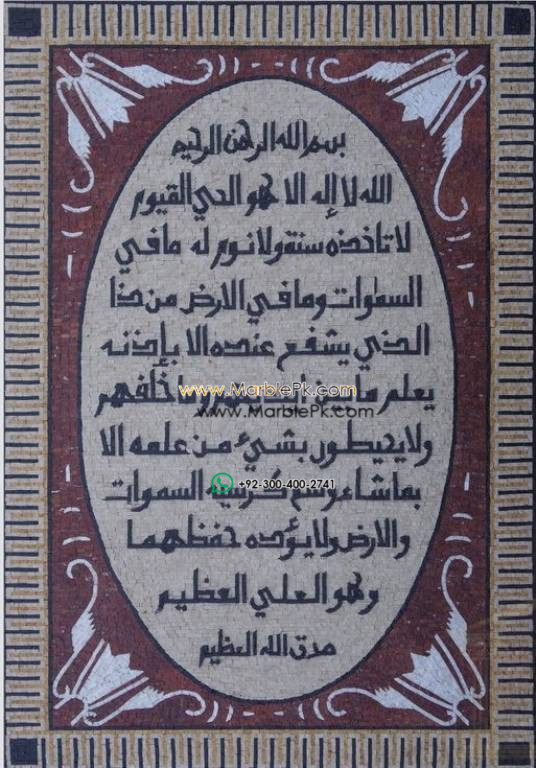 بسم الله الرحمن الرحيم
الله لا إله الا هو الحي القيوم
لا تاخذه سنة ولا نوم له ما في
السموات وما في الارض من ذا
الذي يشفع عنده الا بإذنه
يعلم ما خلفهم
www.MarblePk.com
www.MarblePk.com
ولا يحيطون بشيء من علمه الا
بما شاء وسع كرسيه السموات
+92-300-400-2741
والارض ولا يؤده حفظهما
وهو العلي العظيم
صدق الله العظيم